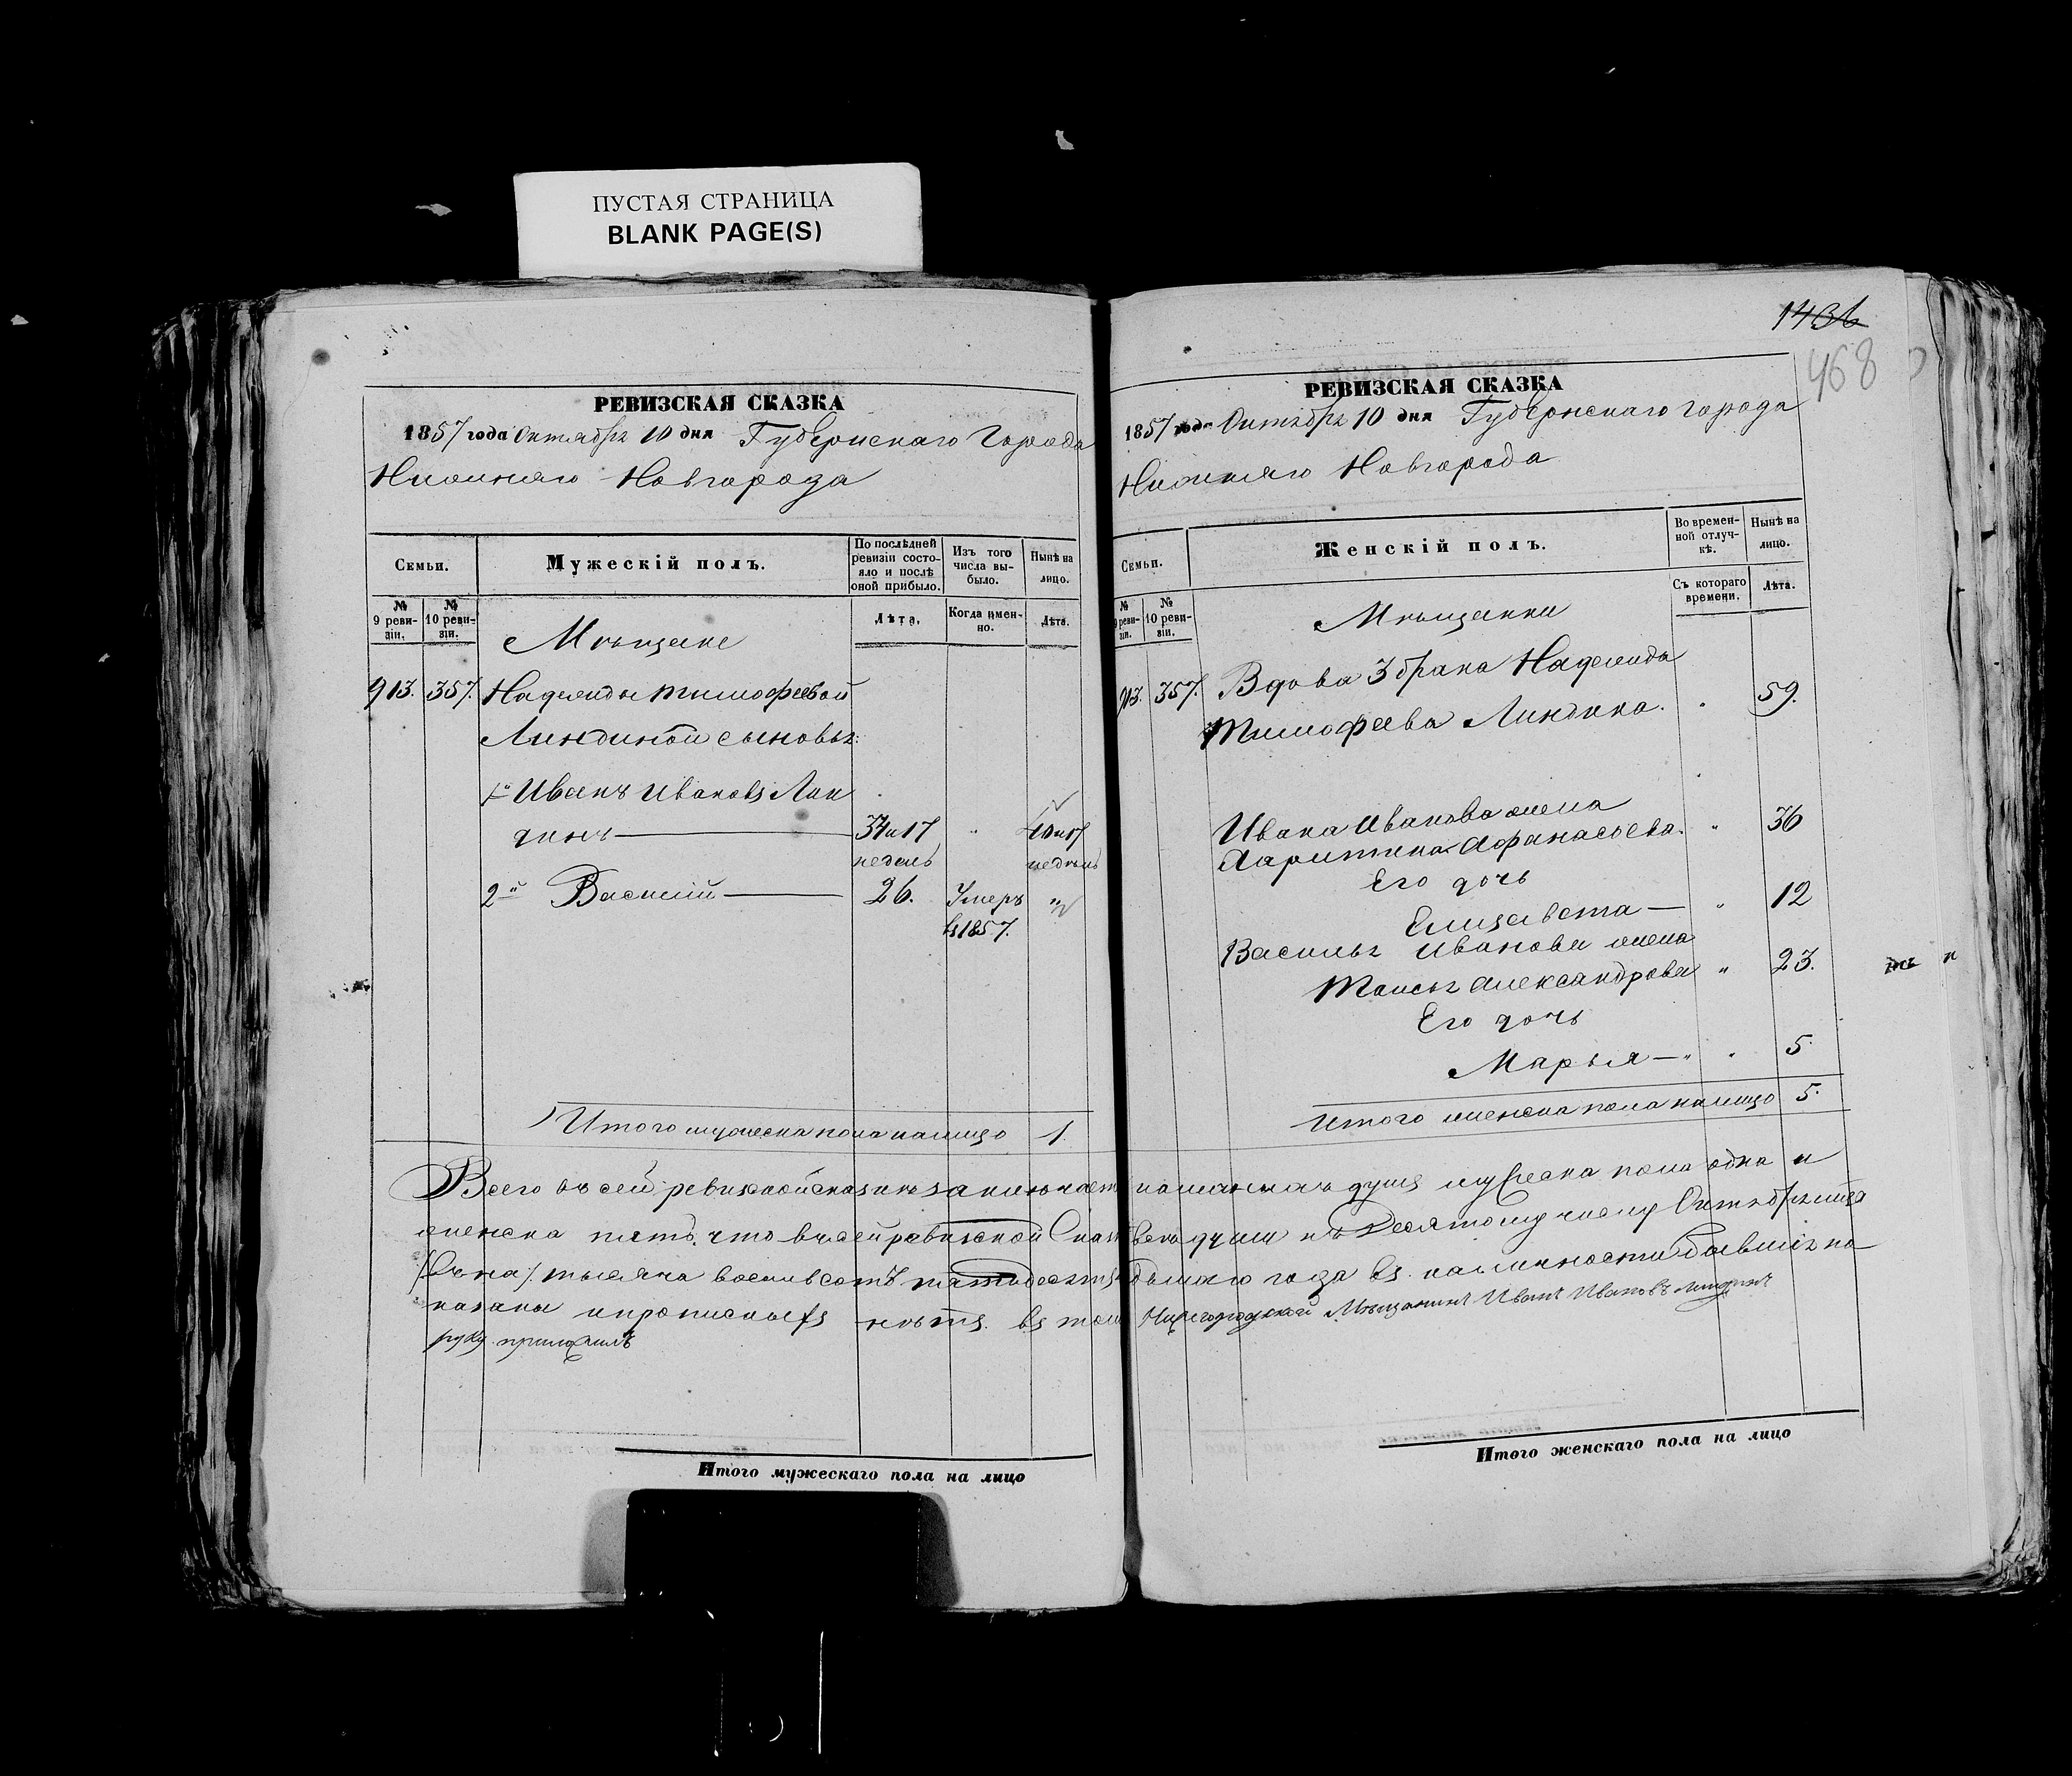 ПУСТАЯ СТРАНИЦА
BLANK PAGE(S)
РЕВИЗСКАЯ СКАЗКА
1857 года Октября 10 дня Губернскаго Города
Нижняго Новгорода
Семьи.
Мужескій полъ.
По послѣдней ревизіи состояло и послѣ оной прибыло.
Изъ того числа выбыло.
Нынѣ на лицо.
№ 9 ревизіи.
№ 10 ревизіи.
Лѣта.
Когда именно.
Лѣта.
Мѣщане
913. 357. Надежды Тимофеевой
Линдиной сыновья:
1й Иванъ Ивановъ Лин
динъ — 34 и 17 " 40 и 17
недель недѣль
2й Василий — 26. Умеръ "
въ 1857.
Итого мужеска пола налицо 1.
1436
468
РЕВИЗСКАЯ СКАЗКА
1857 года Октября 10 дня Губернскаго города
Нижняго Новгорода
Семьи.
Женскій полъ.
Во временной отлучкѣ.
Нынѣ на лицо.
№ 9 ревизіи.
№ 10 ревизіи.
Съ котораго времени.
Лѣта.
Мѣщанки
913. 357. Вдова 3 брака Надежда
Тимофеева Линдина. " 59.
Ивана Иванова жена
Харитина Афанасьева. " 36
Его дочь
Елизавета — " 12
Василья Иванова жена
Таисья Александрова " 23.
Его дочь
Марья — " " 5
Итого женска пола налицо 5.
Всего въ сей ревизской сказкѣ заключает показанныхъ душъ мужеска пола одна и
женска пять, что въ сей ревизской Сказ всѣ души къ Десятому числу Октября мца
тысяча восемьсотъ пятьдесятъ седьмаго года въ наличности бывшія по
казаны и прописныхъ нѣтъ. въ томъ Нижегородской Мѣщанинъ Иванъ Ивановъ Линдинъ
руку приложилъ
Итого мужескаго пола на лицо
Итого женскаго пола на лицо